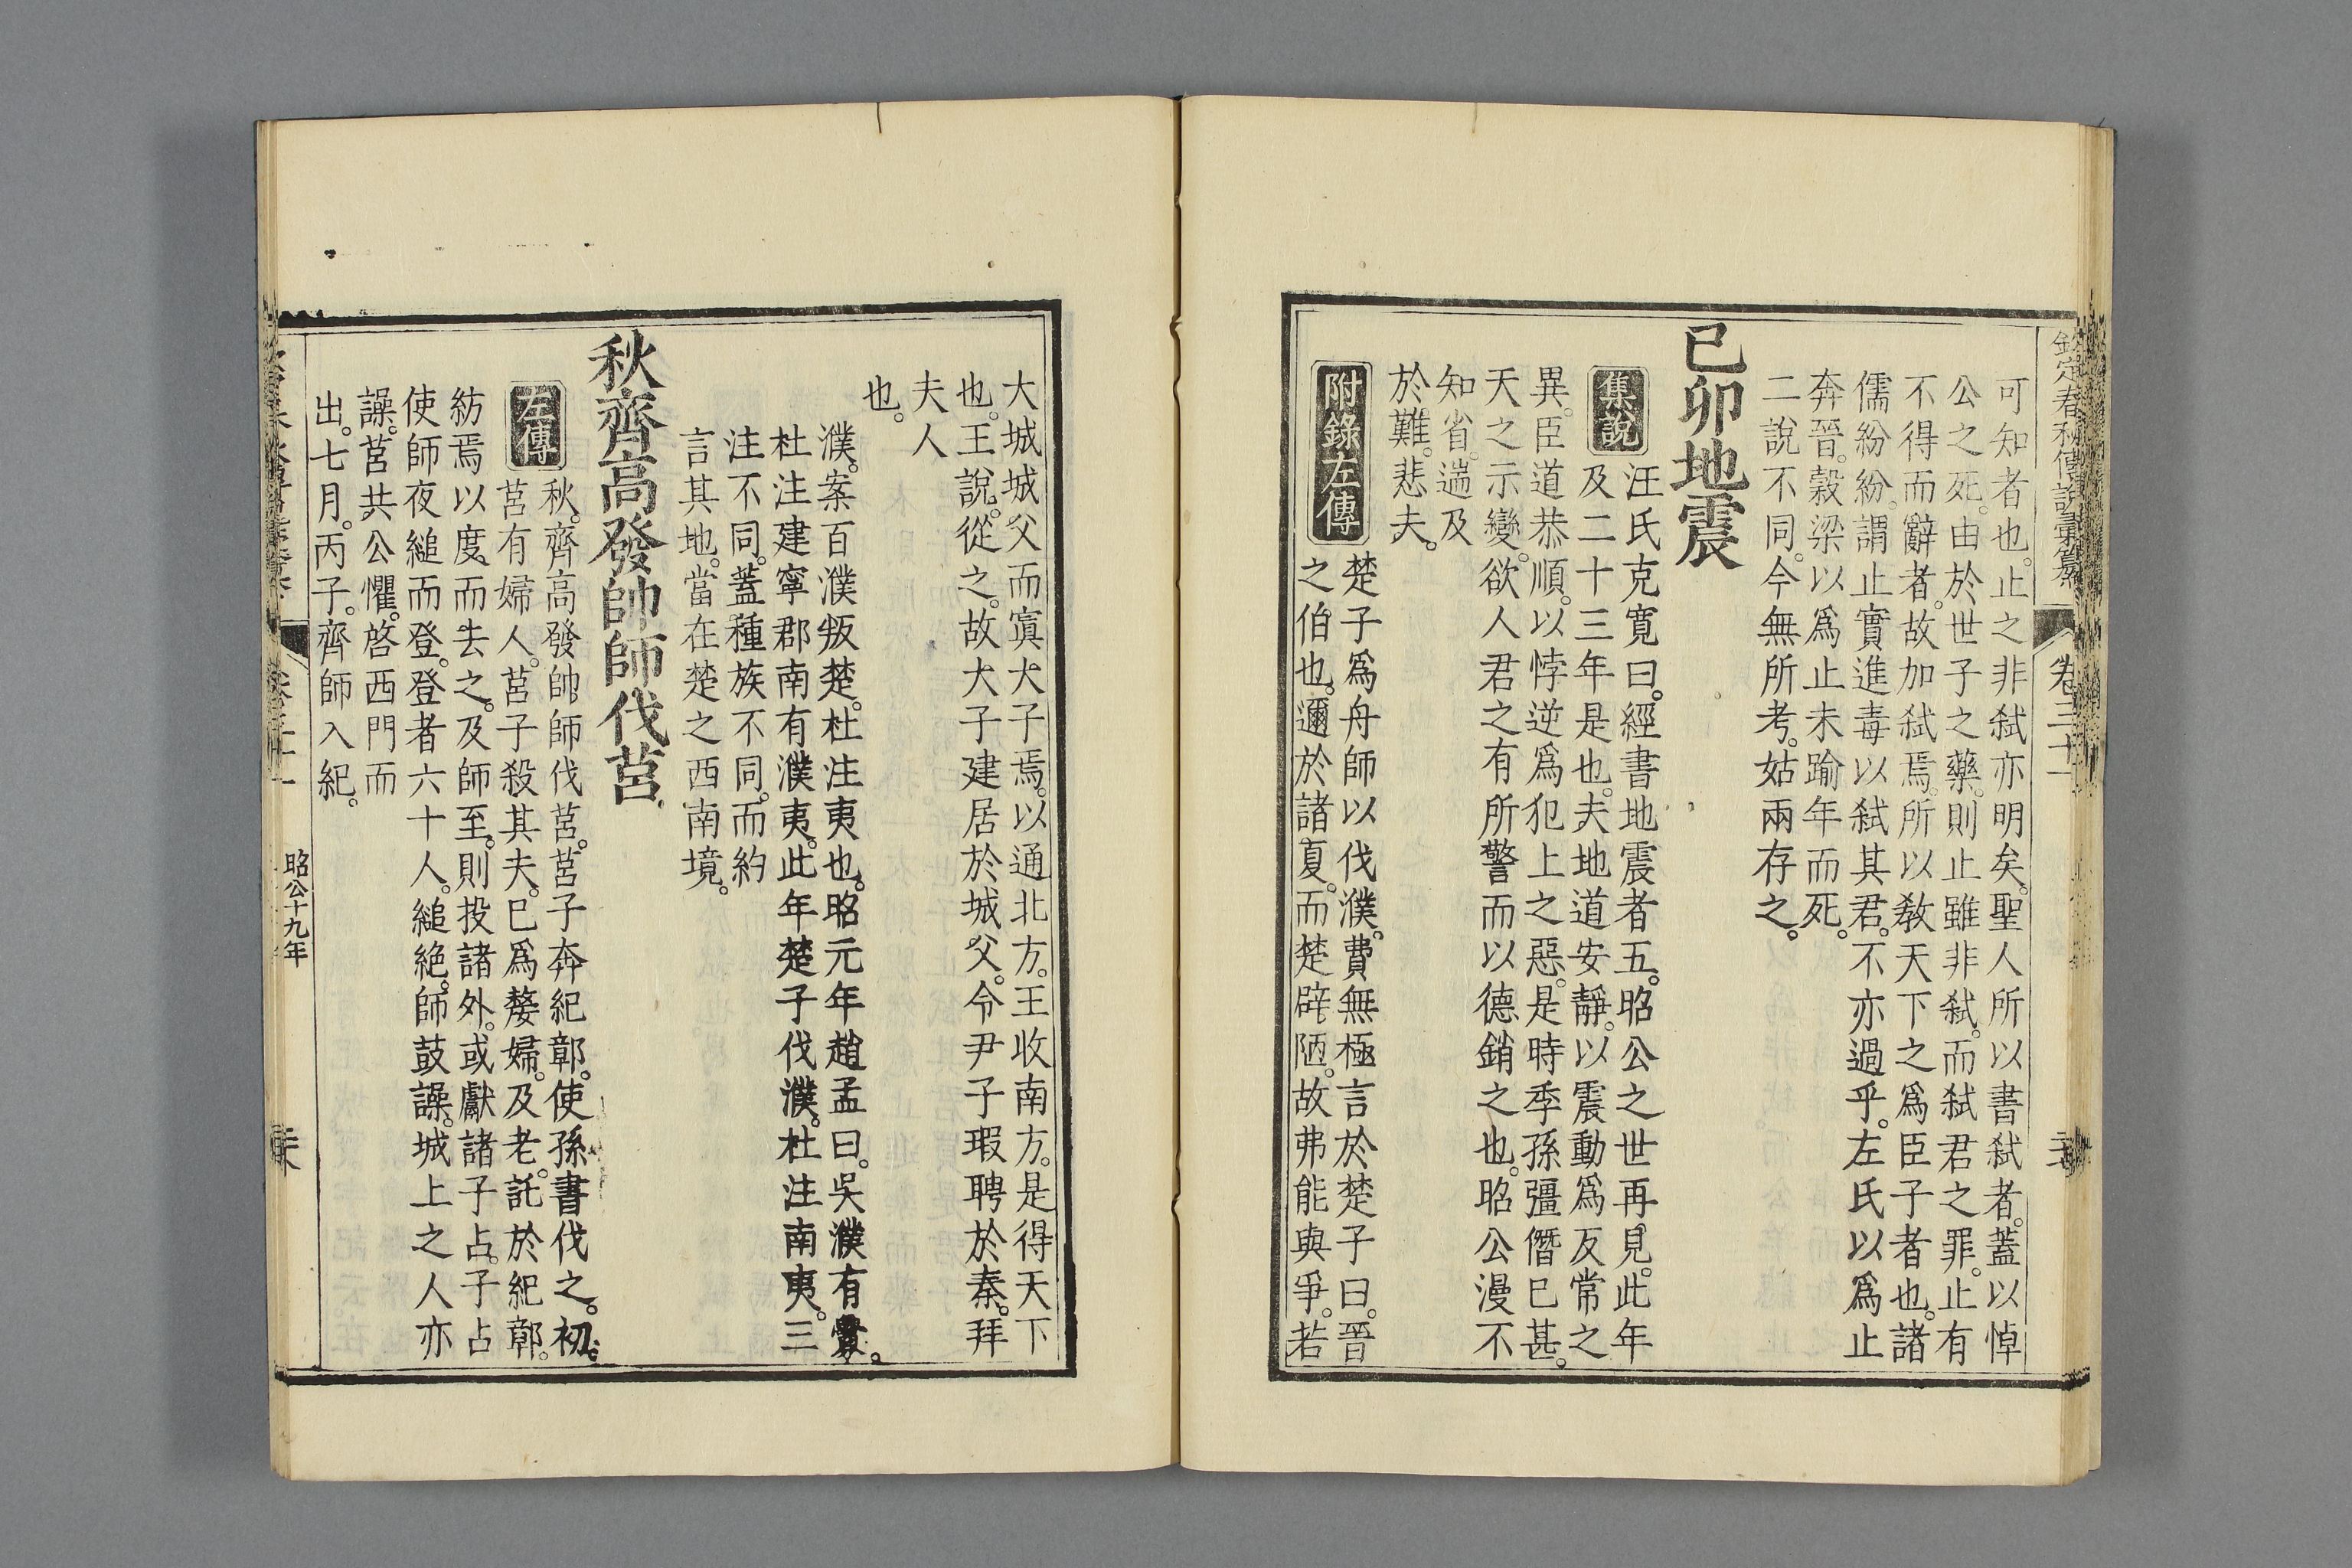 欽定春秋傳說彙纂 卷三十一
可知者也。止之非弑亦明矣。聖人所以書弑者。蓋以悼
公之死。由於世子之藥。則止雖非弑。而弑君之罪。止有
不得而辭者。故加弑焉。所以敎天下之爲臣子者也。諸
儒紛紛。謂止實進毒以弑其君。不亦過乎。左氏以爲止
奔晉。穀梁以爲止未踰年而死。
二說不同。今無所考。姑兩存之。
己卯地震
集說
汪氏克寬曰。經書地震者五。昭公之世再見。此年
及二十三年是也。夫地道安靜。以震動爲反常之
異。臣道恭順。以悖逆爲犯上之惡。是時季孫彊僭已甚。
天之示變。欲人君之有所警而以德銷之也。昭公漫不
知省。遄及
於難。悲夫。
附錄左傳
楚子爲舟師以伐濮。費無極言於楚子曰。晉
之伯也。邇於諸夏。而楚辟陋。故弗能與爭。若
大城城父而寘大子焉。以通北方。王收南方。是得天下
也。王說。從之。故大子建居於城父。令尹子瑕聘於秦。拜
夫人
也。
濮。案百濮叛楚。杜注夷也。昭元年趙孟曰。吳濮有釁。
杜注建寧郡南有濮夷。此年楚子伐濮。杜注南夷。三
注不同。蓋種族不同。而約
言其地。當在楚之西南境。
秋齊高發帥師伐莒
左傳
秋。齊高發帥師伐莒。莒子奔紀鄣。使孫書伐之。初。
莒有婦人。莒子殺其夫。已爲嫠婦。及老。託於紀鄣。
紡焉以度而去之。及師至。則投諸外。或獻諸子占。子占
使師夜縋而登。登者六十人。縋絕。師鼓譟。城上之人亦
譟。莒共公懼。啓西門而
出。七月。丙子。齊師入紀。
昭公十九年